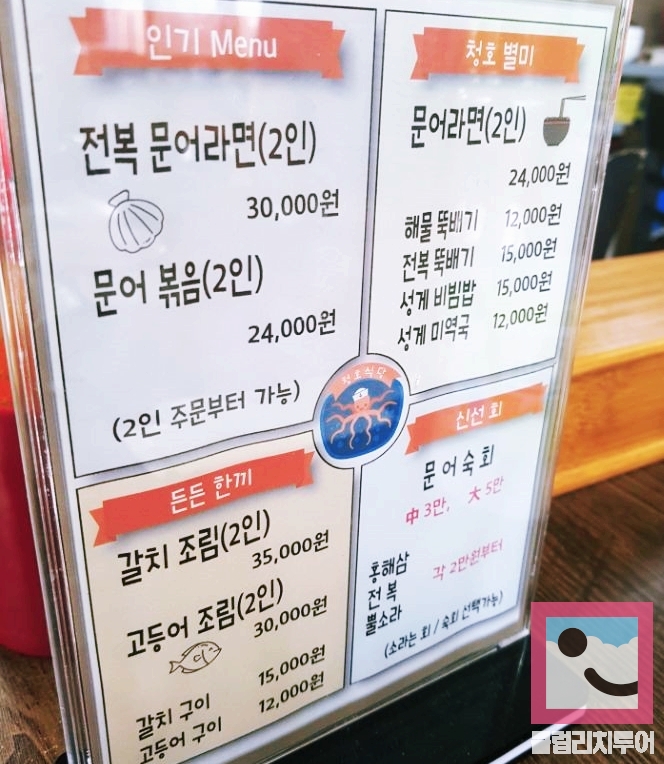 인기 Menu
전복 문어라면(2인)
30,000원
문어 볶음(2인)
24,000원
(2인 주문부터 가능)
청호 별미
문어라면(2인)
24,000원
해물 뚝배기 12,000원
전복 뚝배기 15,000원
성게 비빔밥 15,000원
성게 미역국 12,000원
청호식당
든든 한끼
갈치 조림(2인)
35,000원
고등어 조림(2인)
30,000원
갈치 구이 15,000원
고등어 구이 12,000원
신선 회
문어숙회
中 3만, 大 5만
홍해삼
전복 각 2만원부터
뿔소라
(소라는 회 / 숙회 선택가능)
클럽리치투어